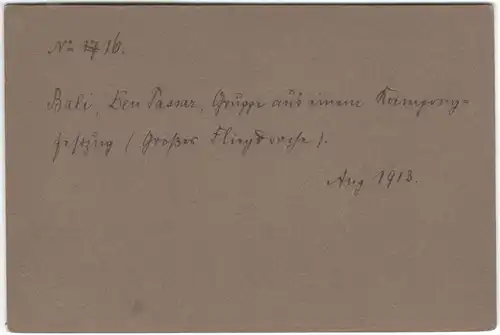 No 17 16.
Bali, Den Passar, Gruppe aus einem Kampong-
festzug (Großer Flugdrache).
Aug 1913.